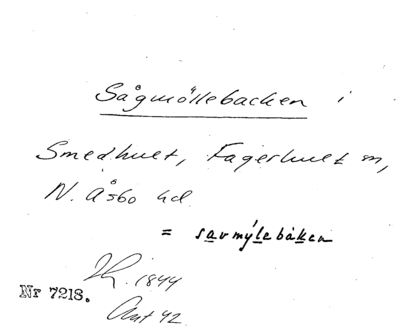 Sågmöllebacken i
Smedhult, Fagerhult sn,
N. Åsbo hd
= savmýlebàken
1844
Nr 7218.
Ant 42